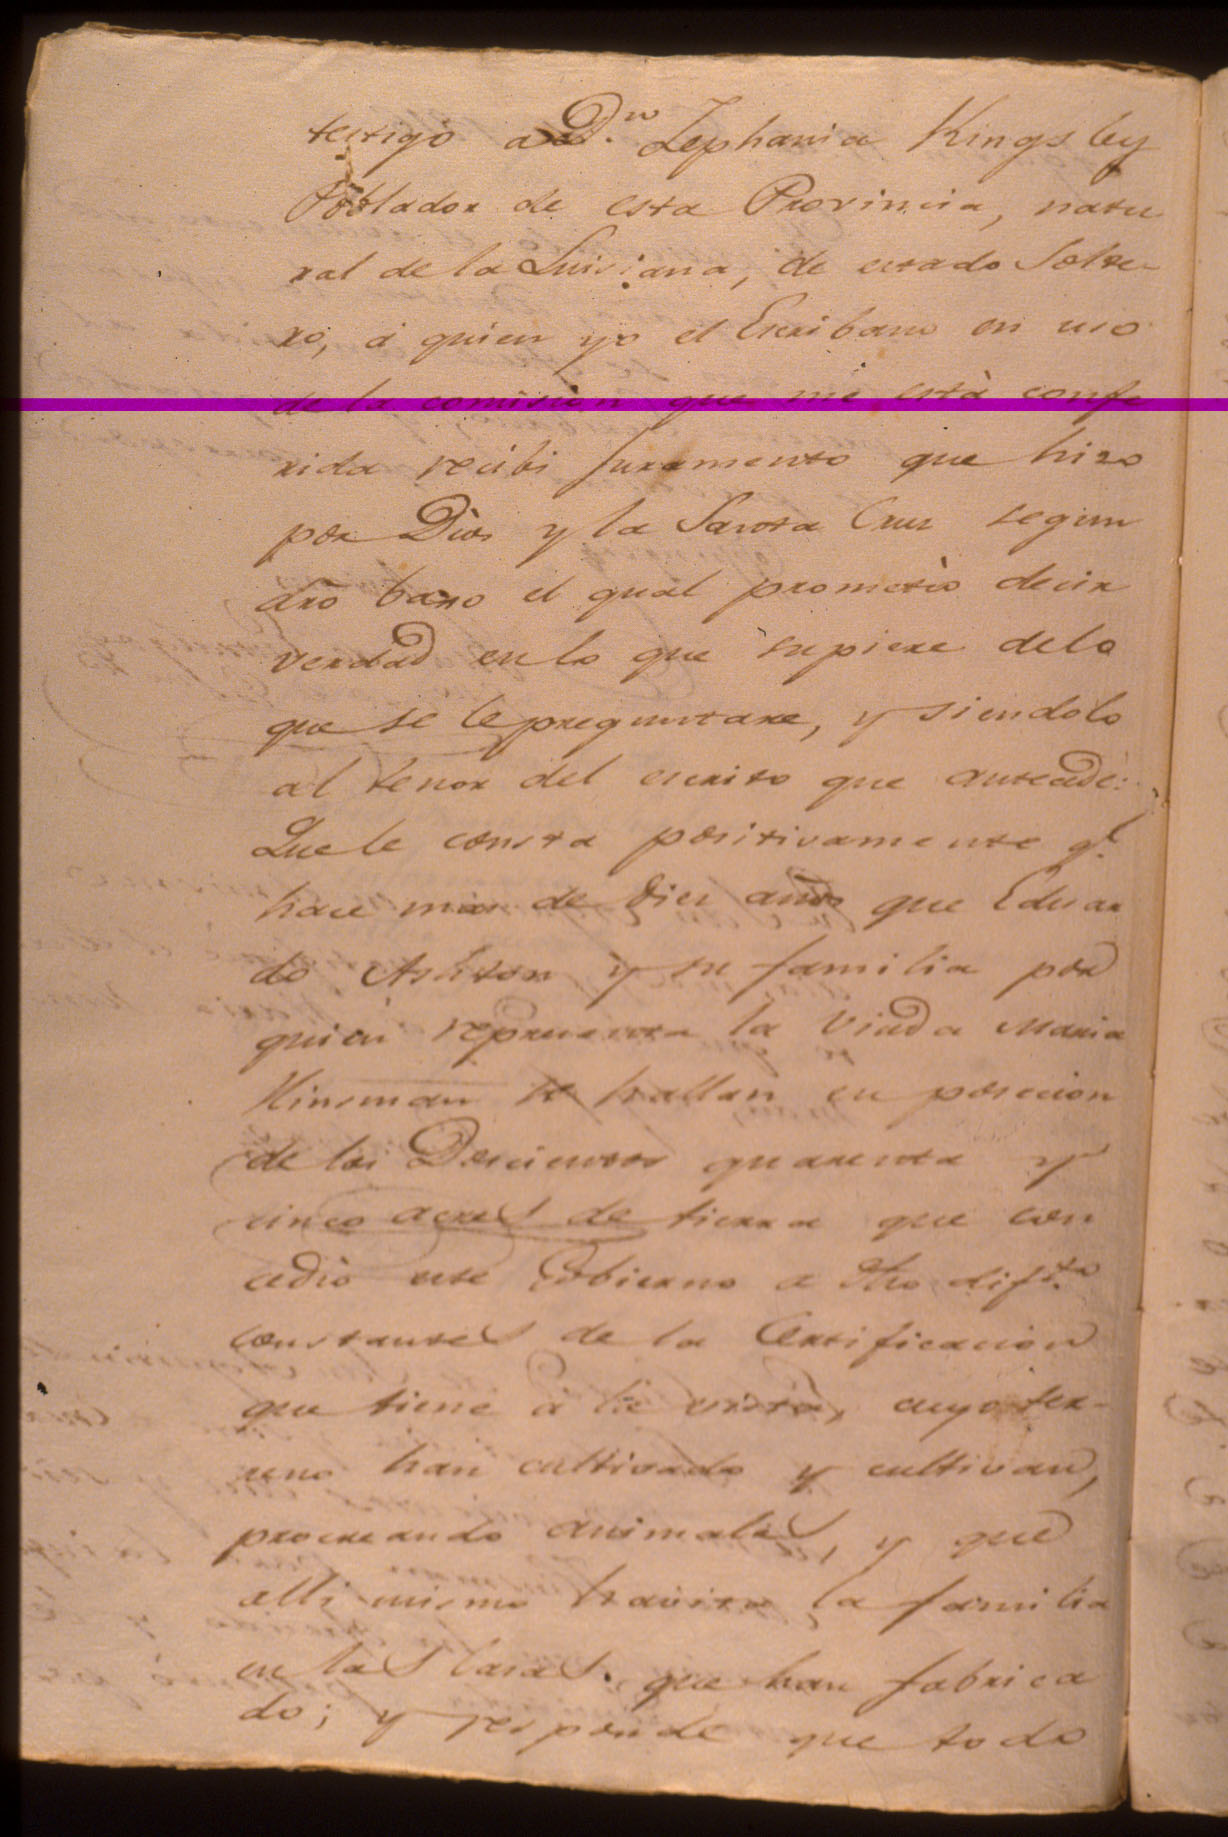 testigo a Dn. Zephania Kingsley
Poblador de esta Provincia, natu
ral de la Luisiana, de estado Solte-
ro, á quien yo el Escribano en uso
de la comisiòn que me està confe
rida recibi Juramento que hizo
por Dios y la Santa Cruz segun
dro baxo el qual prometiò decir
verdad en lo que supiere delo
que se le preguntare, y siendolo
al tenor del escrito que antecede:
Que le consta positivamente qe.
hace mas de Diez años que Eduar
do Ashton y su familia por
quien representa la Viuda Maria
Hinsman se hallan en posecion
de los Doscientos quarenta y
cinco acres de tierra que con
cediò este Gobierno a dho difto.
constantes de la Certificacion
que tiene à la vista, cuyo ter-
reno han cultivado y cultivan,
procreando animales, y que
alli mismo havita la familia
en las Casas que han fabrica
do; y responde que todo